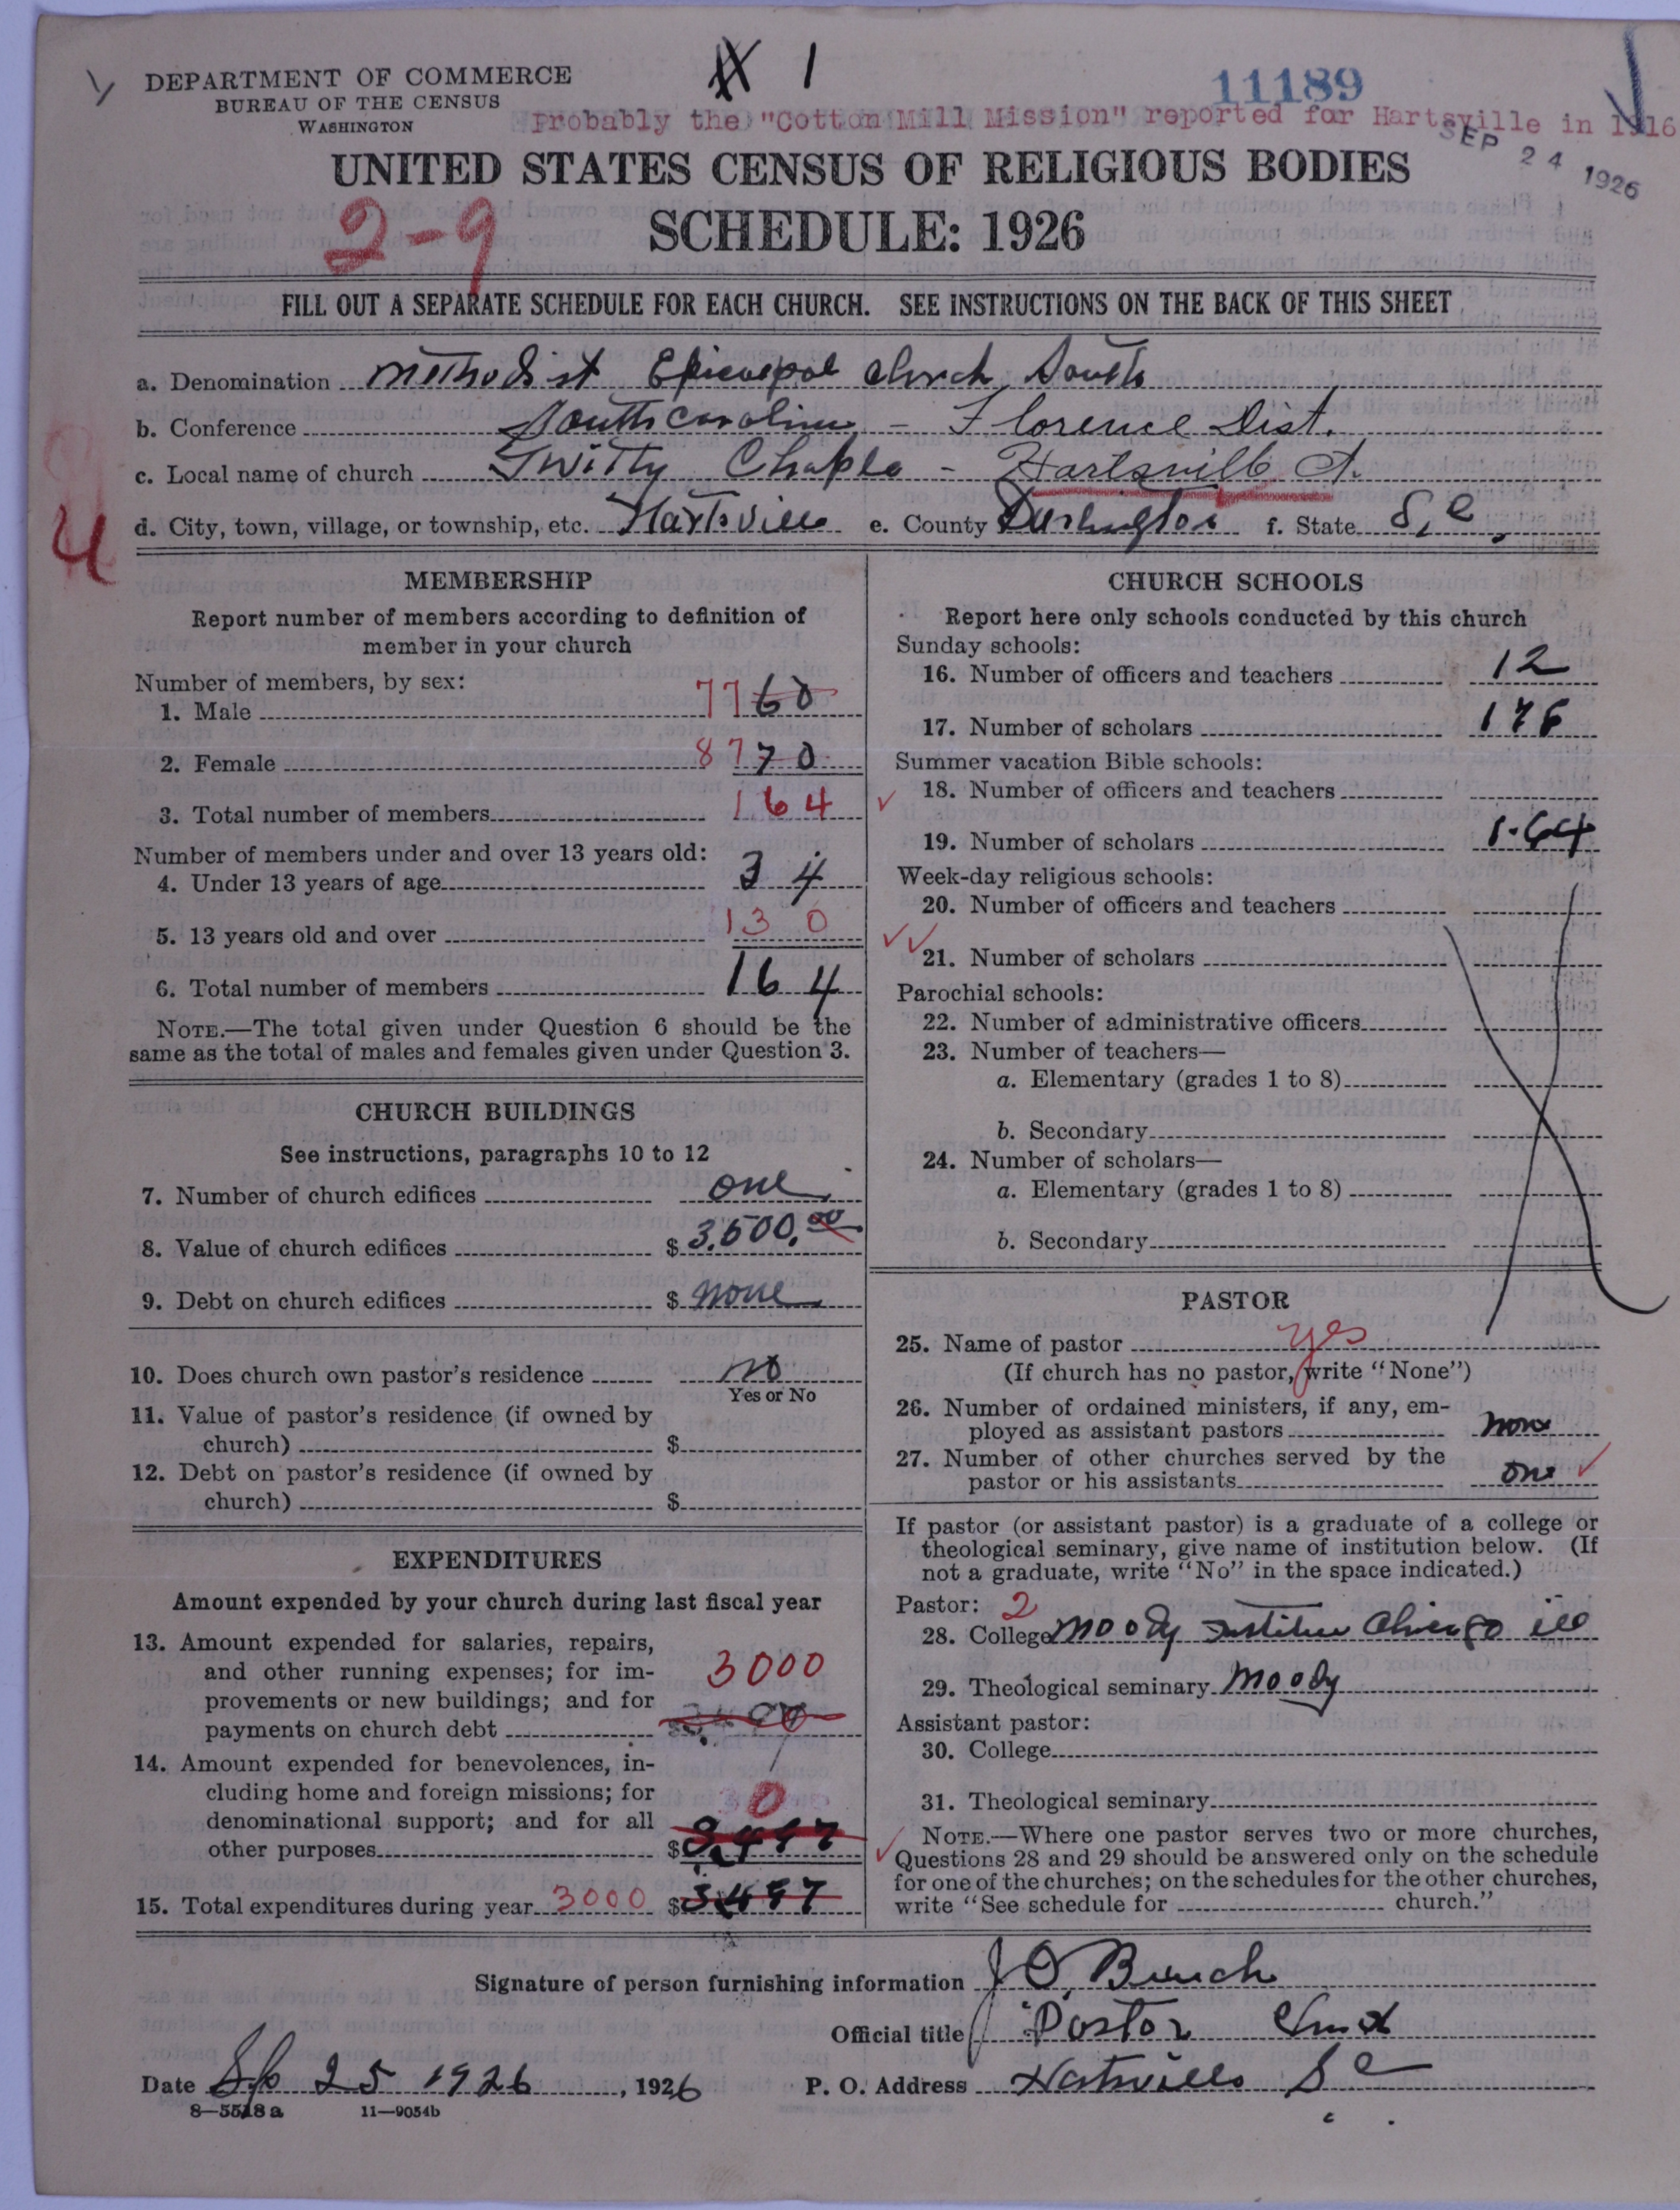 1
11189
DEPARTMENT OF COMMERCE
BUREAU OF THE CENSUS
WASHINGTON
Probably the "Cotton Mill Mission" reported for Hartsville in 1916
SEP 24 1926
UNITED STATES CENSUS OF RELIGIOUS BODIES
2-9
SCHEDULE: 1926
FILL OUT A SEPARATE SCHEDULE FOR EACH CHURCH. SEE INSTRUCTIONS ON THE BACK OF THIS SHEET
a. Denomination Methodist Episcopal Church, South
b. Conference South Carolina - Florence Dist.
c. Local name of church Twitty Chaple - Hartsville Ct.
4
d. City, town, village, or township, etc. Hartsville e. County Darlington f. State S.C.
MEMBERSHIP
Report number of members according to definition of
member in your church
Number of members, by sex:
1. Male 77 60
2. Female 87 70
3. Total number of members 164
Number of members under and over 13 years old:
4. Under 13 years of age 34
5. 13 years old and over 130
6. Total number of members 164
NOTE.—The total given under Question 6 should be the
same as the total of males and females given under Question 3.
CHURCH BUILDINGS
See instructions, paragraphs 10 to 12
7. Number of church edifices one
8. Value of church edifices $ 3,500.00
9. Debt on church edifices $ none
10. Does church own pastor's residence no
Yes or No
11. Value of pastor's residence (if owned by
church) $
12. Debt on pastor's residence (if owned by
church) $
EXPENDITURES
Amount expended by your church during last fiscal year
13. Amount expended for salaries, repairs,
and other running expenses; for im-
provements or new buildings; and for
payments on church debt 3000
14. Amount expended for benevolences, in-
cluding home and foreign missions; for
denominational support; and for all
other purposes 0 $
15. Total expenditures during year 3000 $
CHURCH SCHOOLS
Report here only schools conducted by this church
Sunday schools:
16. Number of officers and teachers 12
17. Number of scholars 176
Summer vacation Bible schools:
18. Number of officers and teachers
19. Number of scholars 1.64
Week-day religious schools:
20. Number of officers and teachers
21. Number of scholars
Parochial schools:
22. Number of administrative officers
23. Number of teachers—
a. Elementary (grades 1 to 8)
b. Secondary
24. Number of scholars—
a. Elementary (grades 1 to 8)
b. Secondary
PASTOR
25. Name of pastor yes
(If church has no pastor, write "None")
26. Number of ordained ministers, if any, em-
ployed as assistant pastors none
27. Number of other churches served by the
pastor or his assistants one
If pastor (or assistant pastor) is a graduate of a college or
theological seminary, give name of institution below. (If
not a graduate, write "No" in the space indicated.)
Pastor: 2
28. College Moody Institue Chicago ill
29. Theological seminary Moody
Assistant pastor:
30. College
31. Theological seminary
NOTE.—Where one pastor serves two or more churches,
Questions 28 and 29 should be answered only on the schedule
for one of the churches; on the schedules for the other churches,
write "See schedule for church."
Signature of person furnishing information J O. Bunch
Official title Pastor
Date 25 1926, 1926 P. O. Address Hartsville S C
8—5518 a 11—9054b